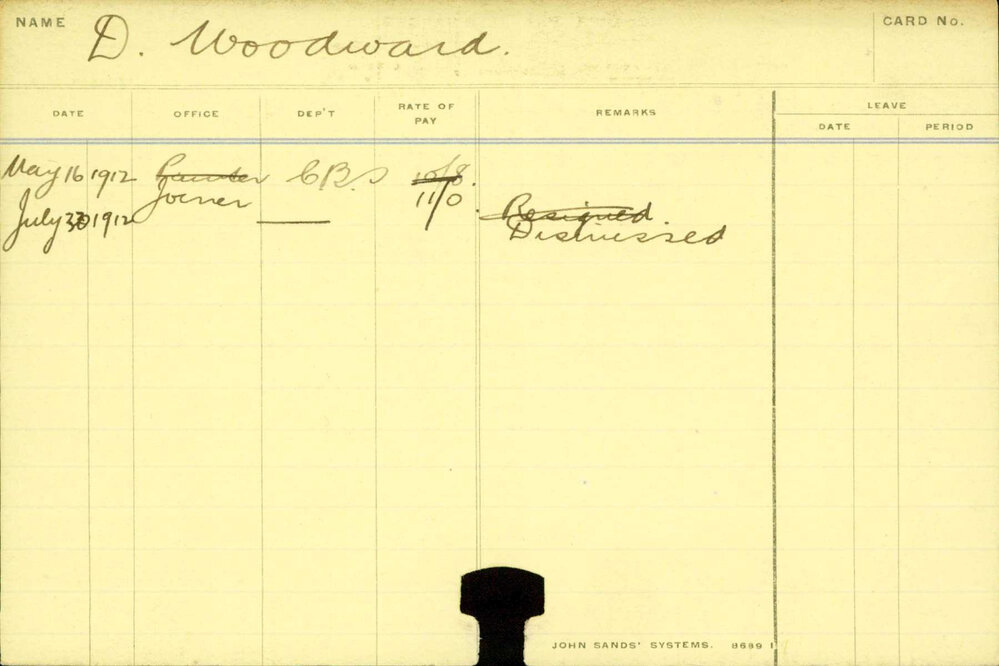 NAME D. Woodward. CARD No.
DATE OFFICE DEP'T RATE OF PAY REMARKS LEAVE
DATE PERIOD
May 16 1912 Painter C.B.S 10/8.
Joiner 11/0
July 30 1912 — Resigned
Dismissed
JOHN SANDS' SYSTEMS. 8689 1